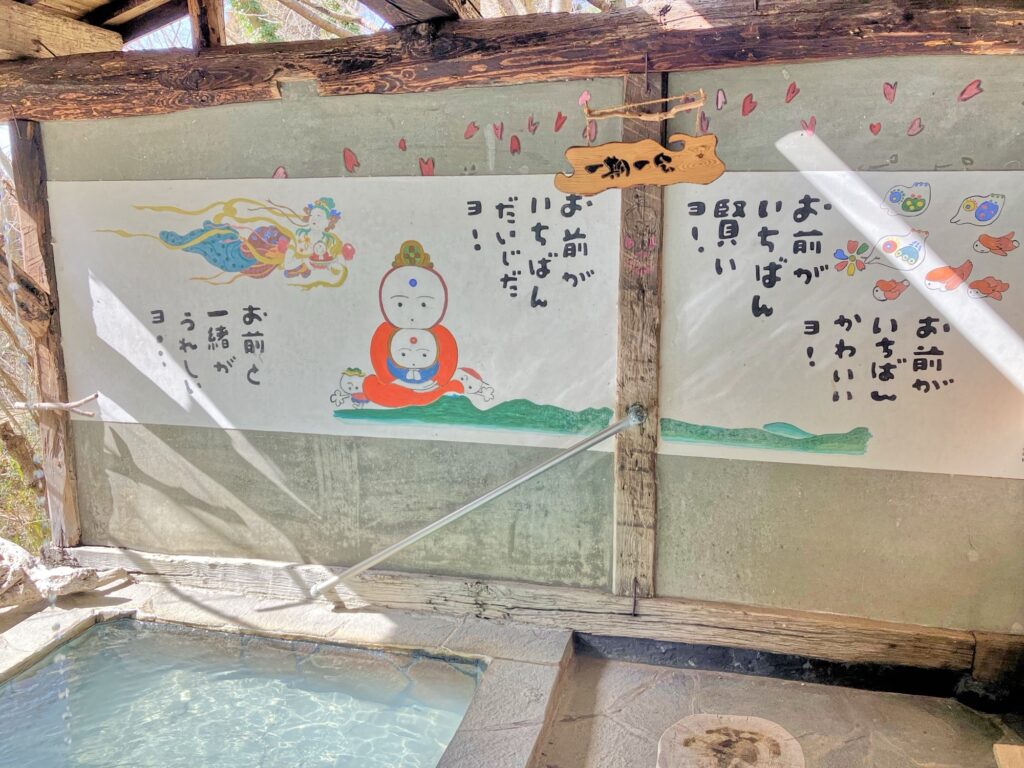 一期一会
お前が
いちばん
賢い
ヨ!
お前が
いちばん
かわいい
ヨ!
お前が
いちばん
だいじだ
ヨ!
お前と
一緒が
うれしい
ヨ…